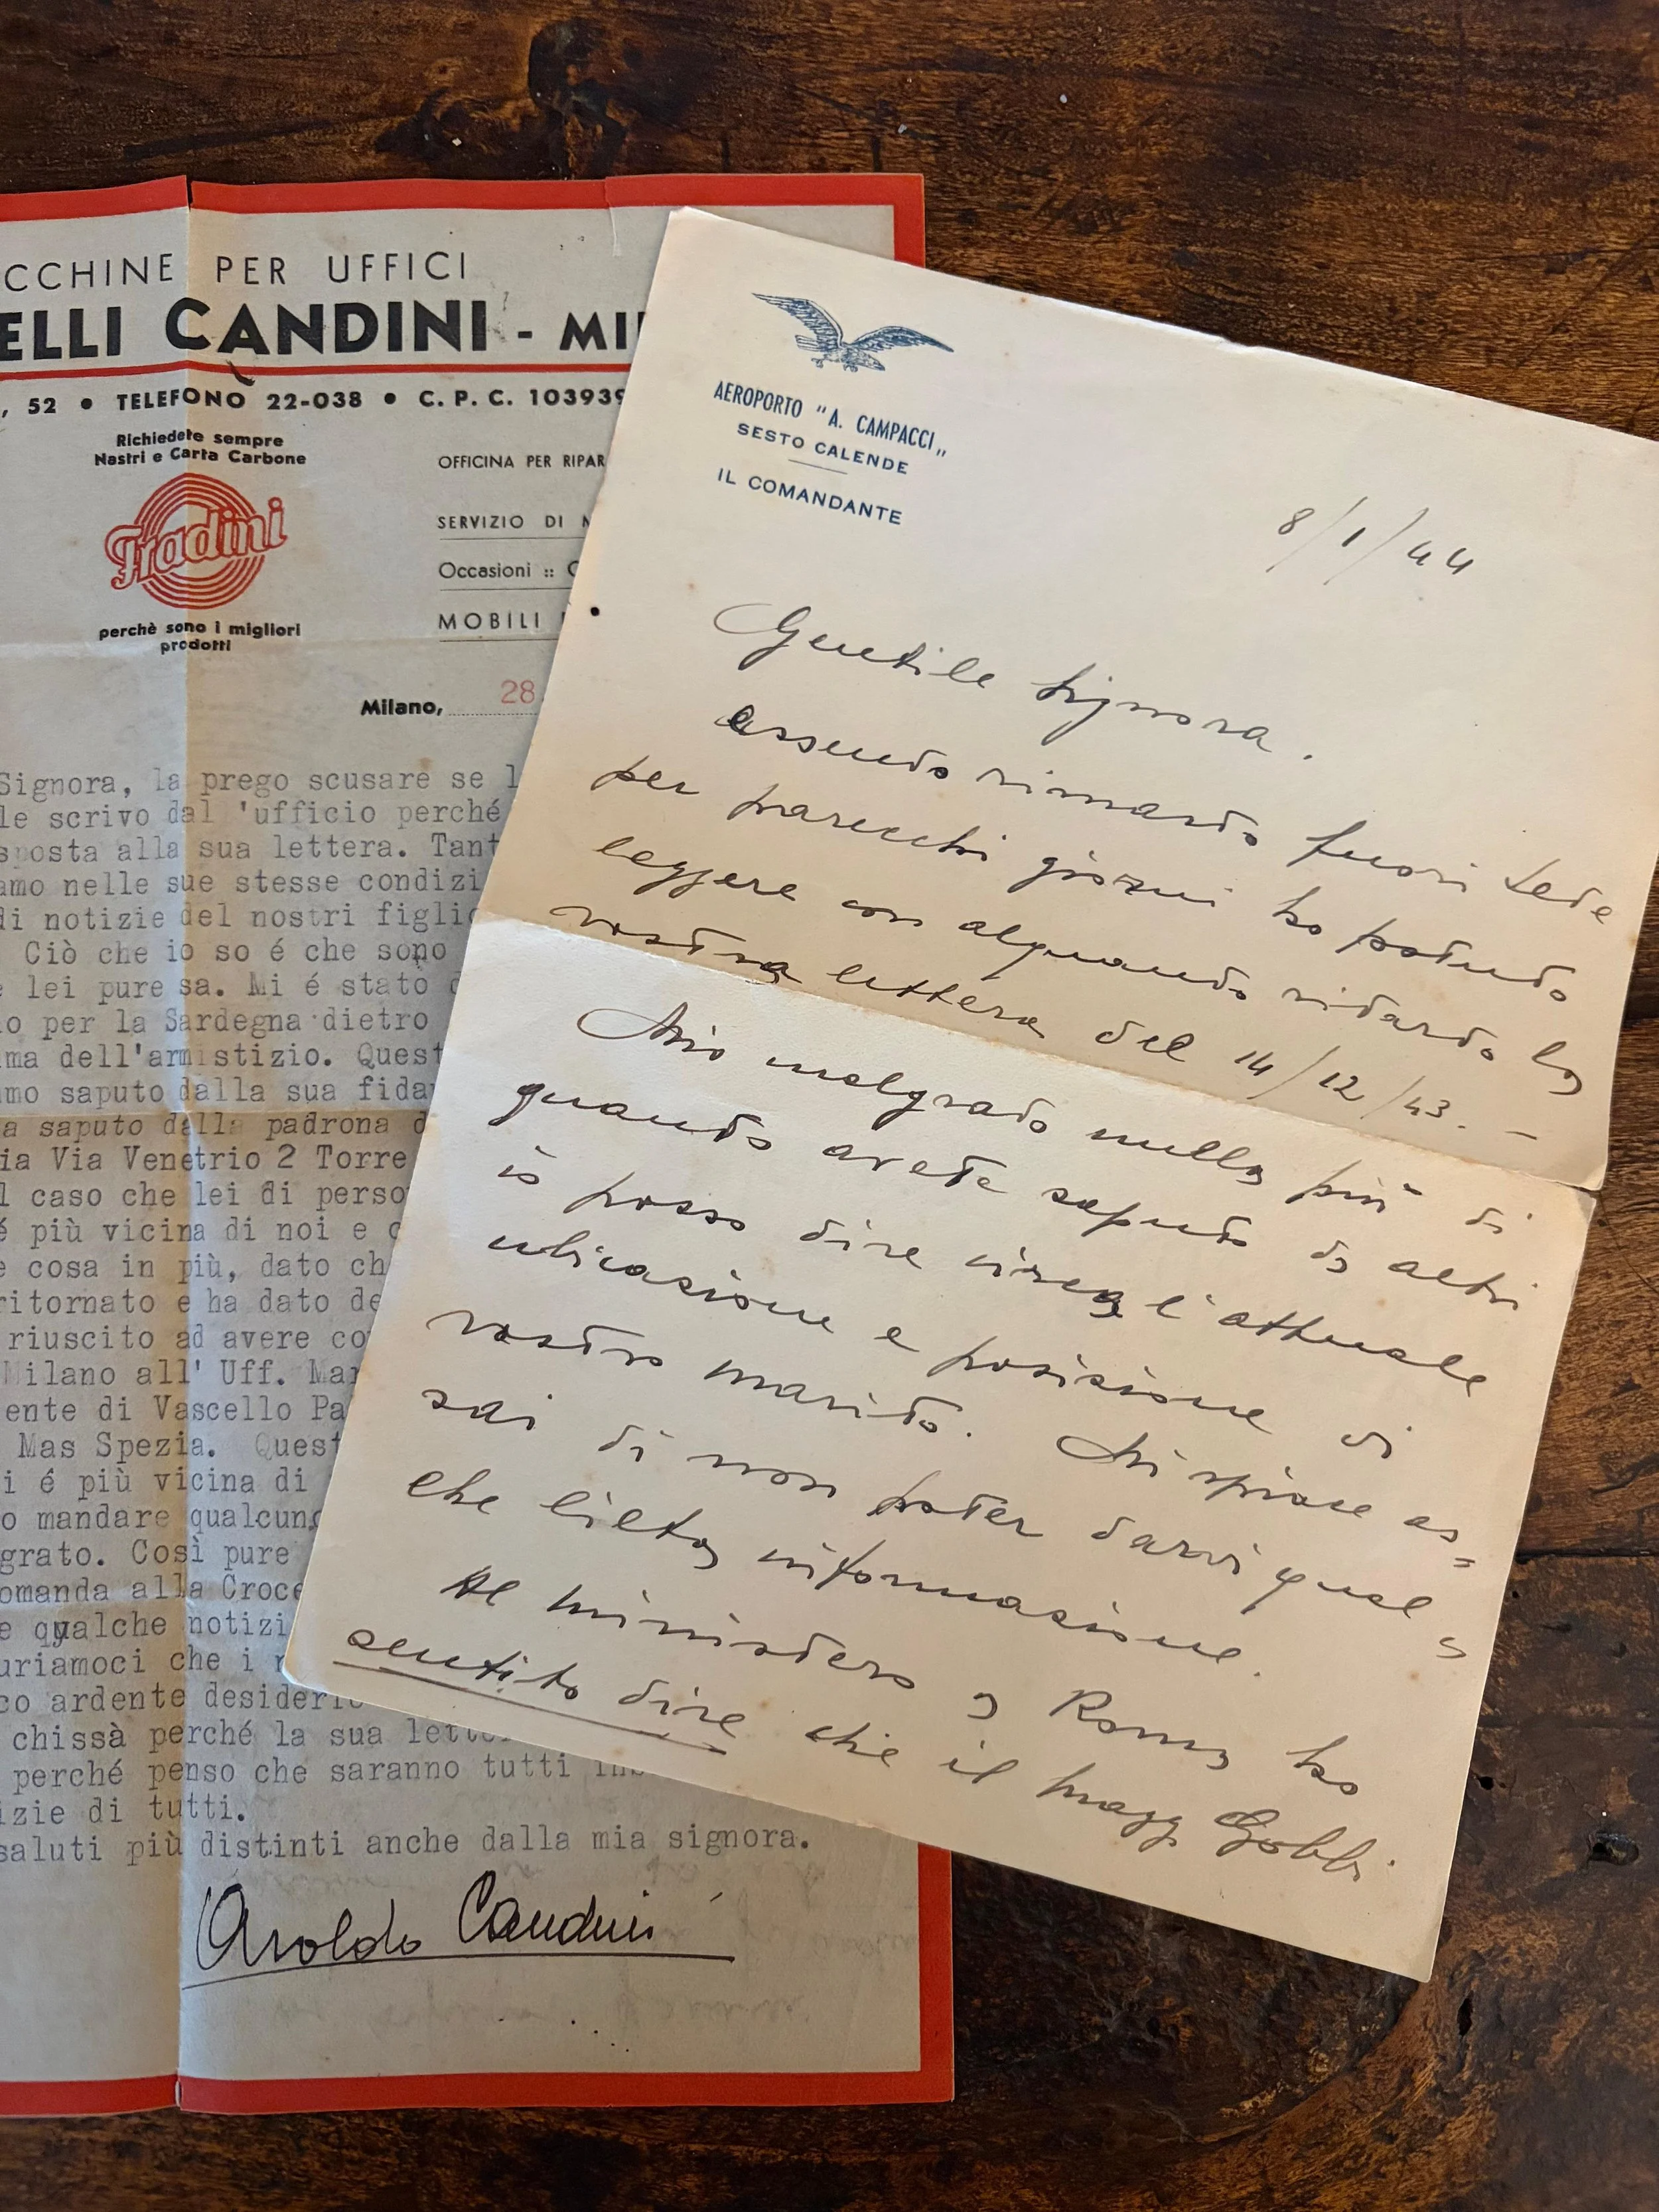 CCHINE PER UFFICI
ELLI CANDINI - MI
, 52 • TELEFONO 22-038 • C. P. C. 103939
Richiedete sempre
Nastri e Carta Carbone
Fradini
perchè sono i migliori
prodotti
OFFICINA PER RIPAR
SERVIZIO DI
Occasioni ::
MOBILI
Milano, 28
Signora, la prego scusare se l
le scrivo dal 'ufficio perché
sposta alla sua lettera. Tant
amo nelle sue stesse condizi
di notizie del nostri figli
Ciò che io so é che sono
e lei pure sa. Mi é stato
o per la Sardegna dietro
ma dell'armistizio. Quest
mo saputo dalla sua fida
a saputo dalla padrona d
ia Via Venetrio 2 Torre
l caso che lei di perso
é più vicina di noi e
e cosa in più, dato ch
ritornato e ha dato de
riuscito ad avere co
Milano all' Uff. Mar
ente di Vascello Pa
Mas Spezia. Quest
i é più vicina di
o mandare qualcun
grato. Così pure
omanda alla Croce
e qualche notizi
uriamoci che i
co ardente desideri
chissà perché la sua lett
perché penso che saranno tutti
izie di tutti.
saluti più distinti anche dalla mia signora.
Aroldo Candini
AEROPORTO "A. CAMPACCI„
SESTO CALENDE
IL COMANDANTE
8/1/44
Gentile Signora.
essendo rimasto fuori sede
per parecchi giorni ho potuto
leggere con alquanto ritardo la
vostra lettera del 14/12/43. -
Mio malgrado nulla più di
quanto avete saputo da altri
io posso dire circa l'attuale
ubicazione e posizione di
vostro marito. Mi spiace as=
sai di non poter darvi qual=
che lieta informazione.
Al ministero a Roma ho
sentito dire che il magg. Gobbi